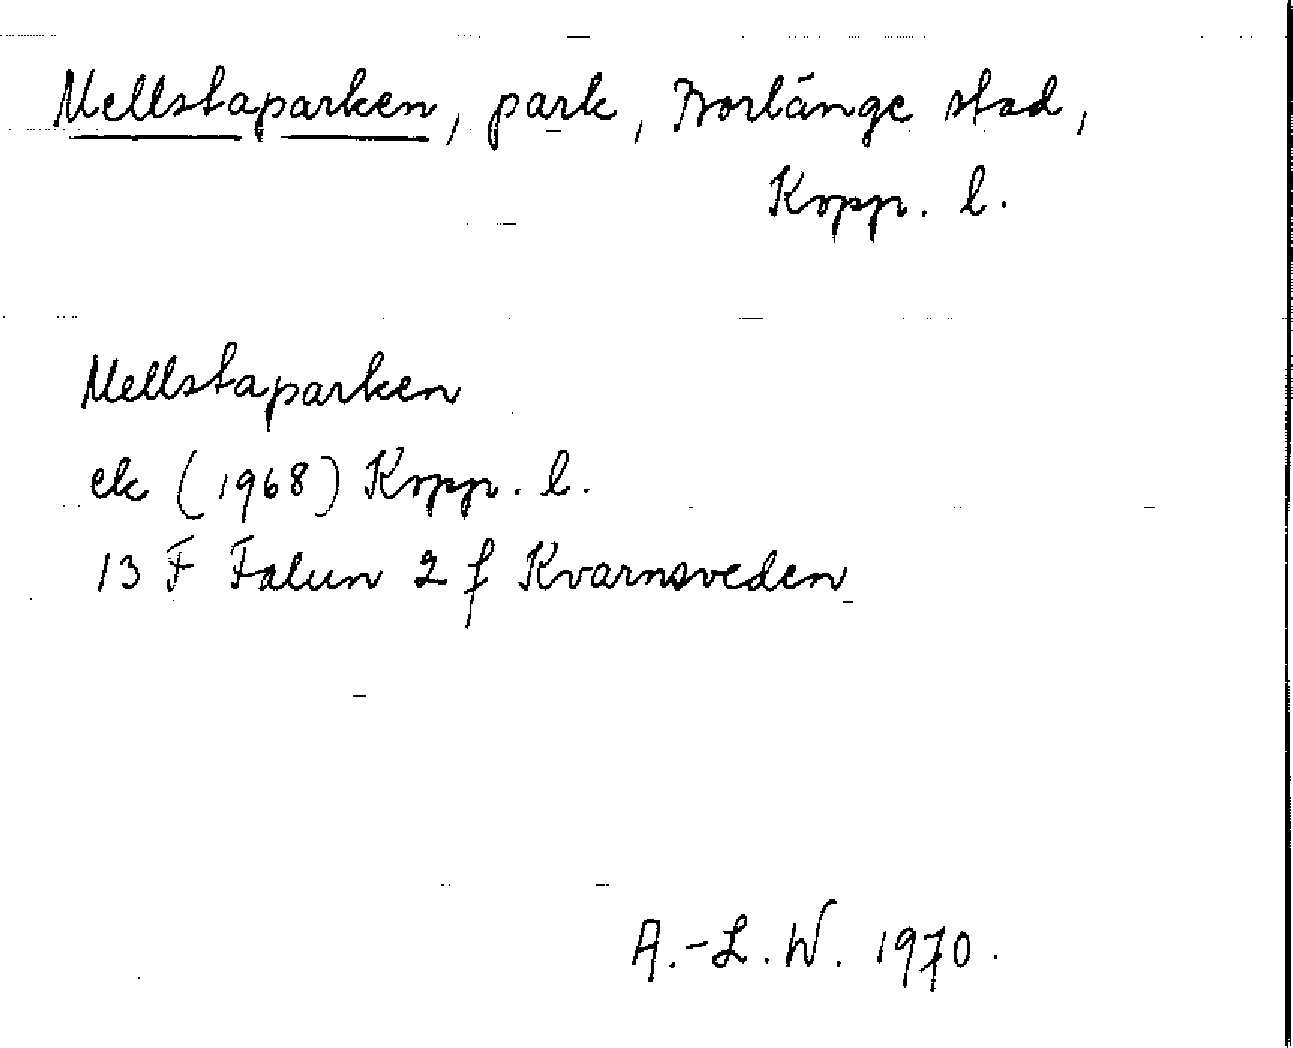 Mellstaparken, park, Borlänge stad,
Kopp. l.
Mellstaparken
ek (1968) Kopp. l.
13 F Falun 2 f Kvarnsveden
A.-L. W. 1970.